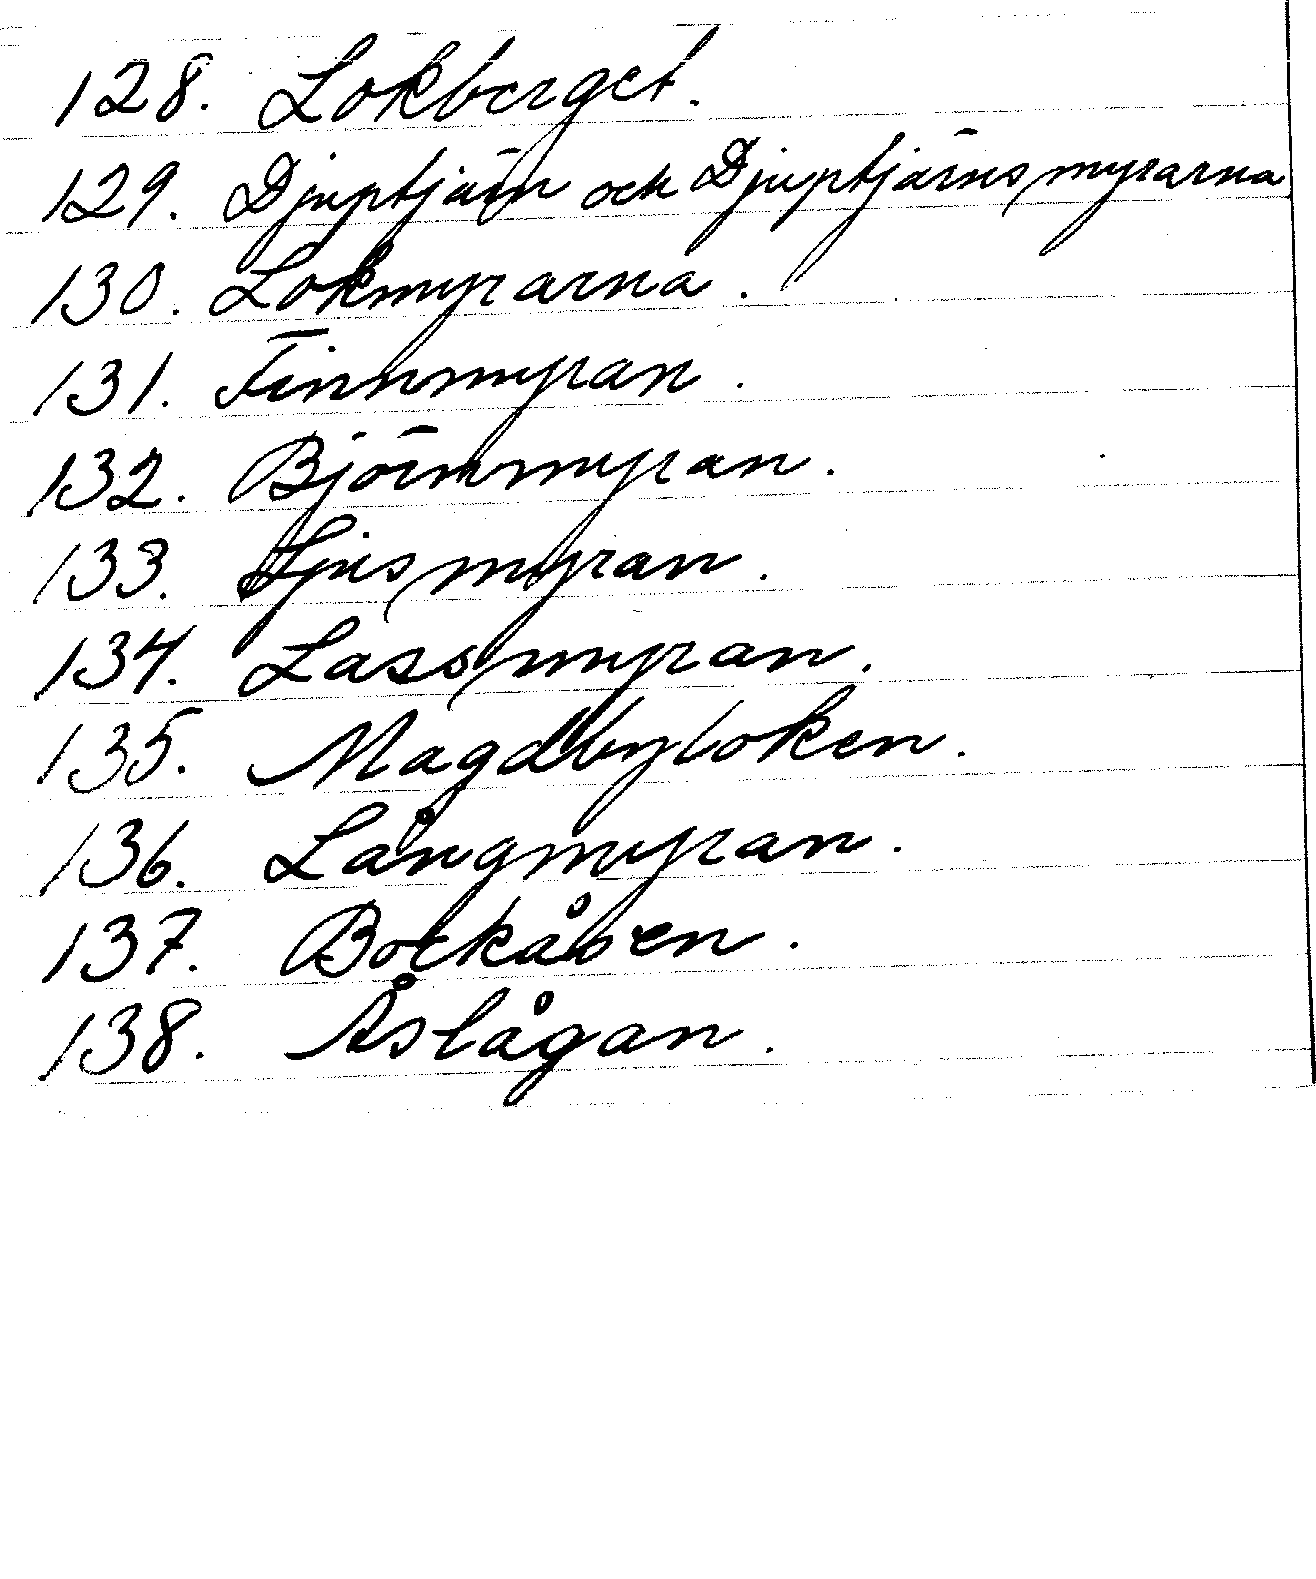 128. Lokberget.
129. Djuptjärn och Djuptjärnsmyrarna
130. Lokmyrarna.
131. Finnmyran.
132. Björnmyran.
133. Ljusmyran.
134. Lassmyran.
135. Magdbyloken.
136. Långmyran.
137. Bockåsen.
138. Åslågan.